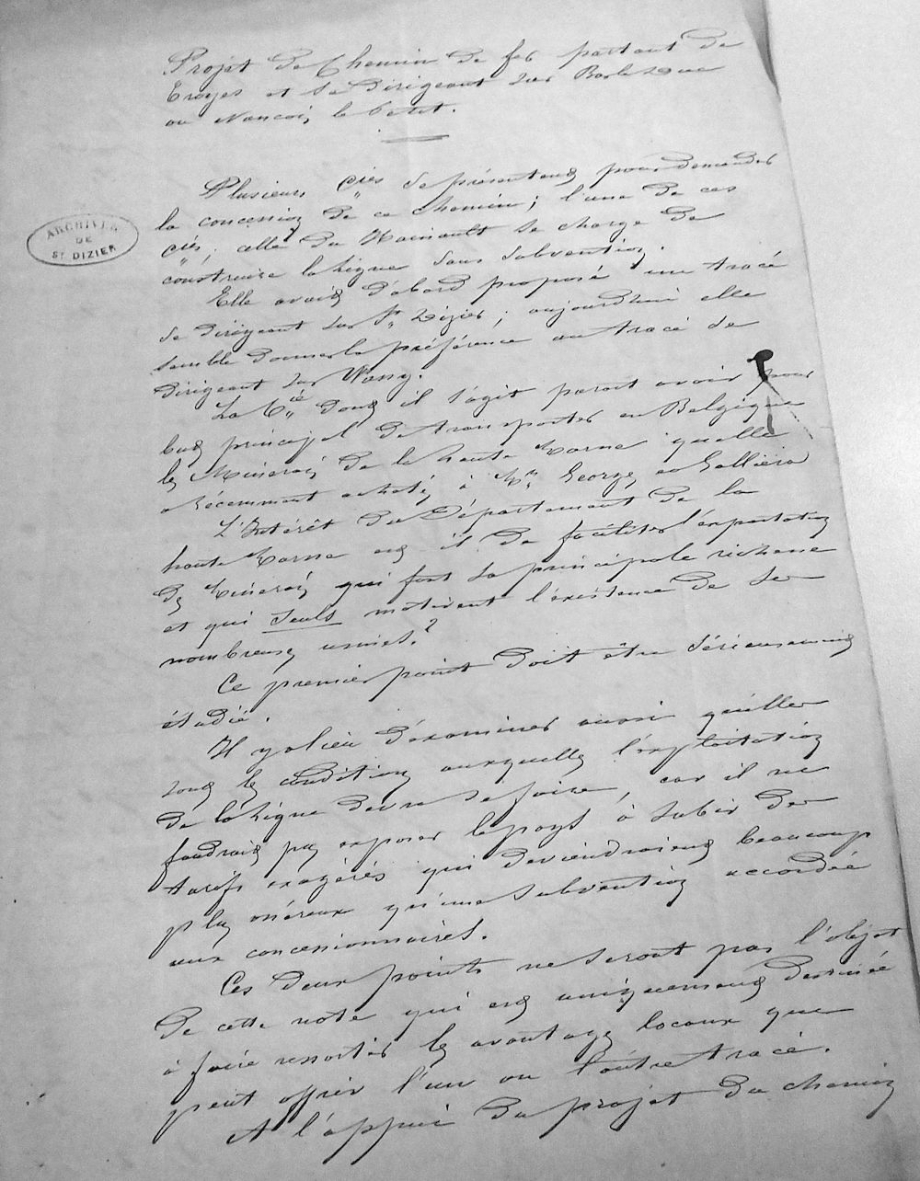 Projet de Chemin de fer partant de
Eroyes et se dirigeant sur Barleduc
ou Nancois le petit.
Plusieurs Cies se présentent pour demander
la concession de ce chemin ; l'une de ces
cies, celle du Hainault se charge de
construire la ligne sans subvention.
ARCHIVES
DE
ST DIZIER
Elle avait d'abord proposé une tracé
se dirigeant sur St Dizier ; aujourdhui elle
semble donner la préférence au tracé se
dirigeant sur Wassy.
La Cie dont il s'agit parait avoir pour
but principal de transporter en Belgique
les Minerais de la haute Marne qu'elle
a récemment acheté à Mrs George et
L'Intérêt du Département de la
haute Marne est il de faciliter l'exportation
des Minerais qui font sa principale richesse
et qui seuls motivent l'existence de ses
nombreuses usines ?
Ce premier point doit être sérieusement
étudié.
Il y a lieu d'examiner aussi quelles
sont les conditions auxquelles l'exploitation
de la ligne devra se faire, car il ne
faudrait pas exposer le pays à subir des
tarifs exagérés qui deviendraient beaucoup
plus onéreux qu'une subvention accordée
aux concessionnaires.
Ces deux points ne seront pas l'objet
de cette note qui est uniquement destinée
à faire ressortir les avantages locaux que
peut offrir l'un ou l'autre tracé.
A l'appui du projet du chemin